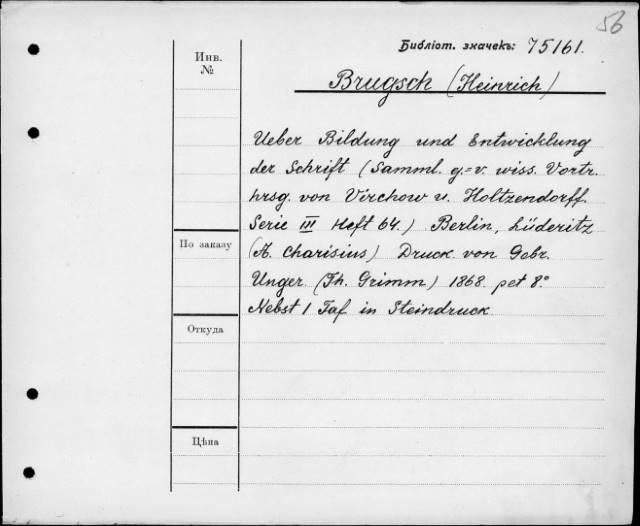 56
Библіот. значекъ: 75161.
Инв.
№
Brugsch (Heinrich)
Ueber Bildung und Entwicklung
der Schrift (Samml. g.=v. wiss. Vortr.
hrsg. von Virchow u. Holtzendorff.
Serie III Heft 64.) Berlin, Lüderitz
По заказу
(A. Charisius) Druck von Gebr.
Unger (Th. Grimm) 1868. pet 8°
Nebst 1 Taf in Steindruck.
Откуда
Цѣна